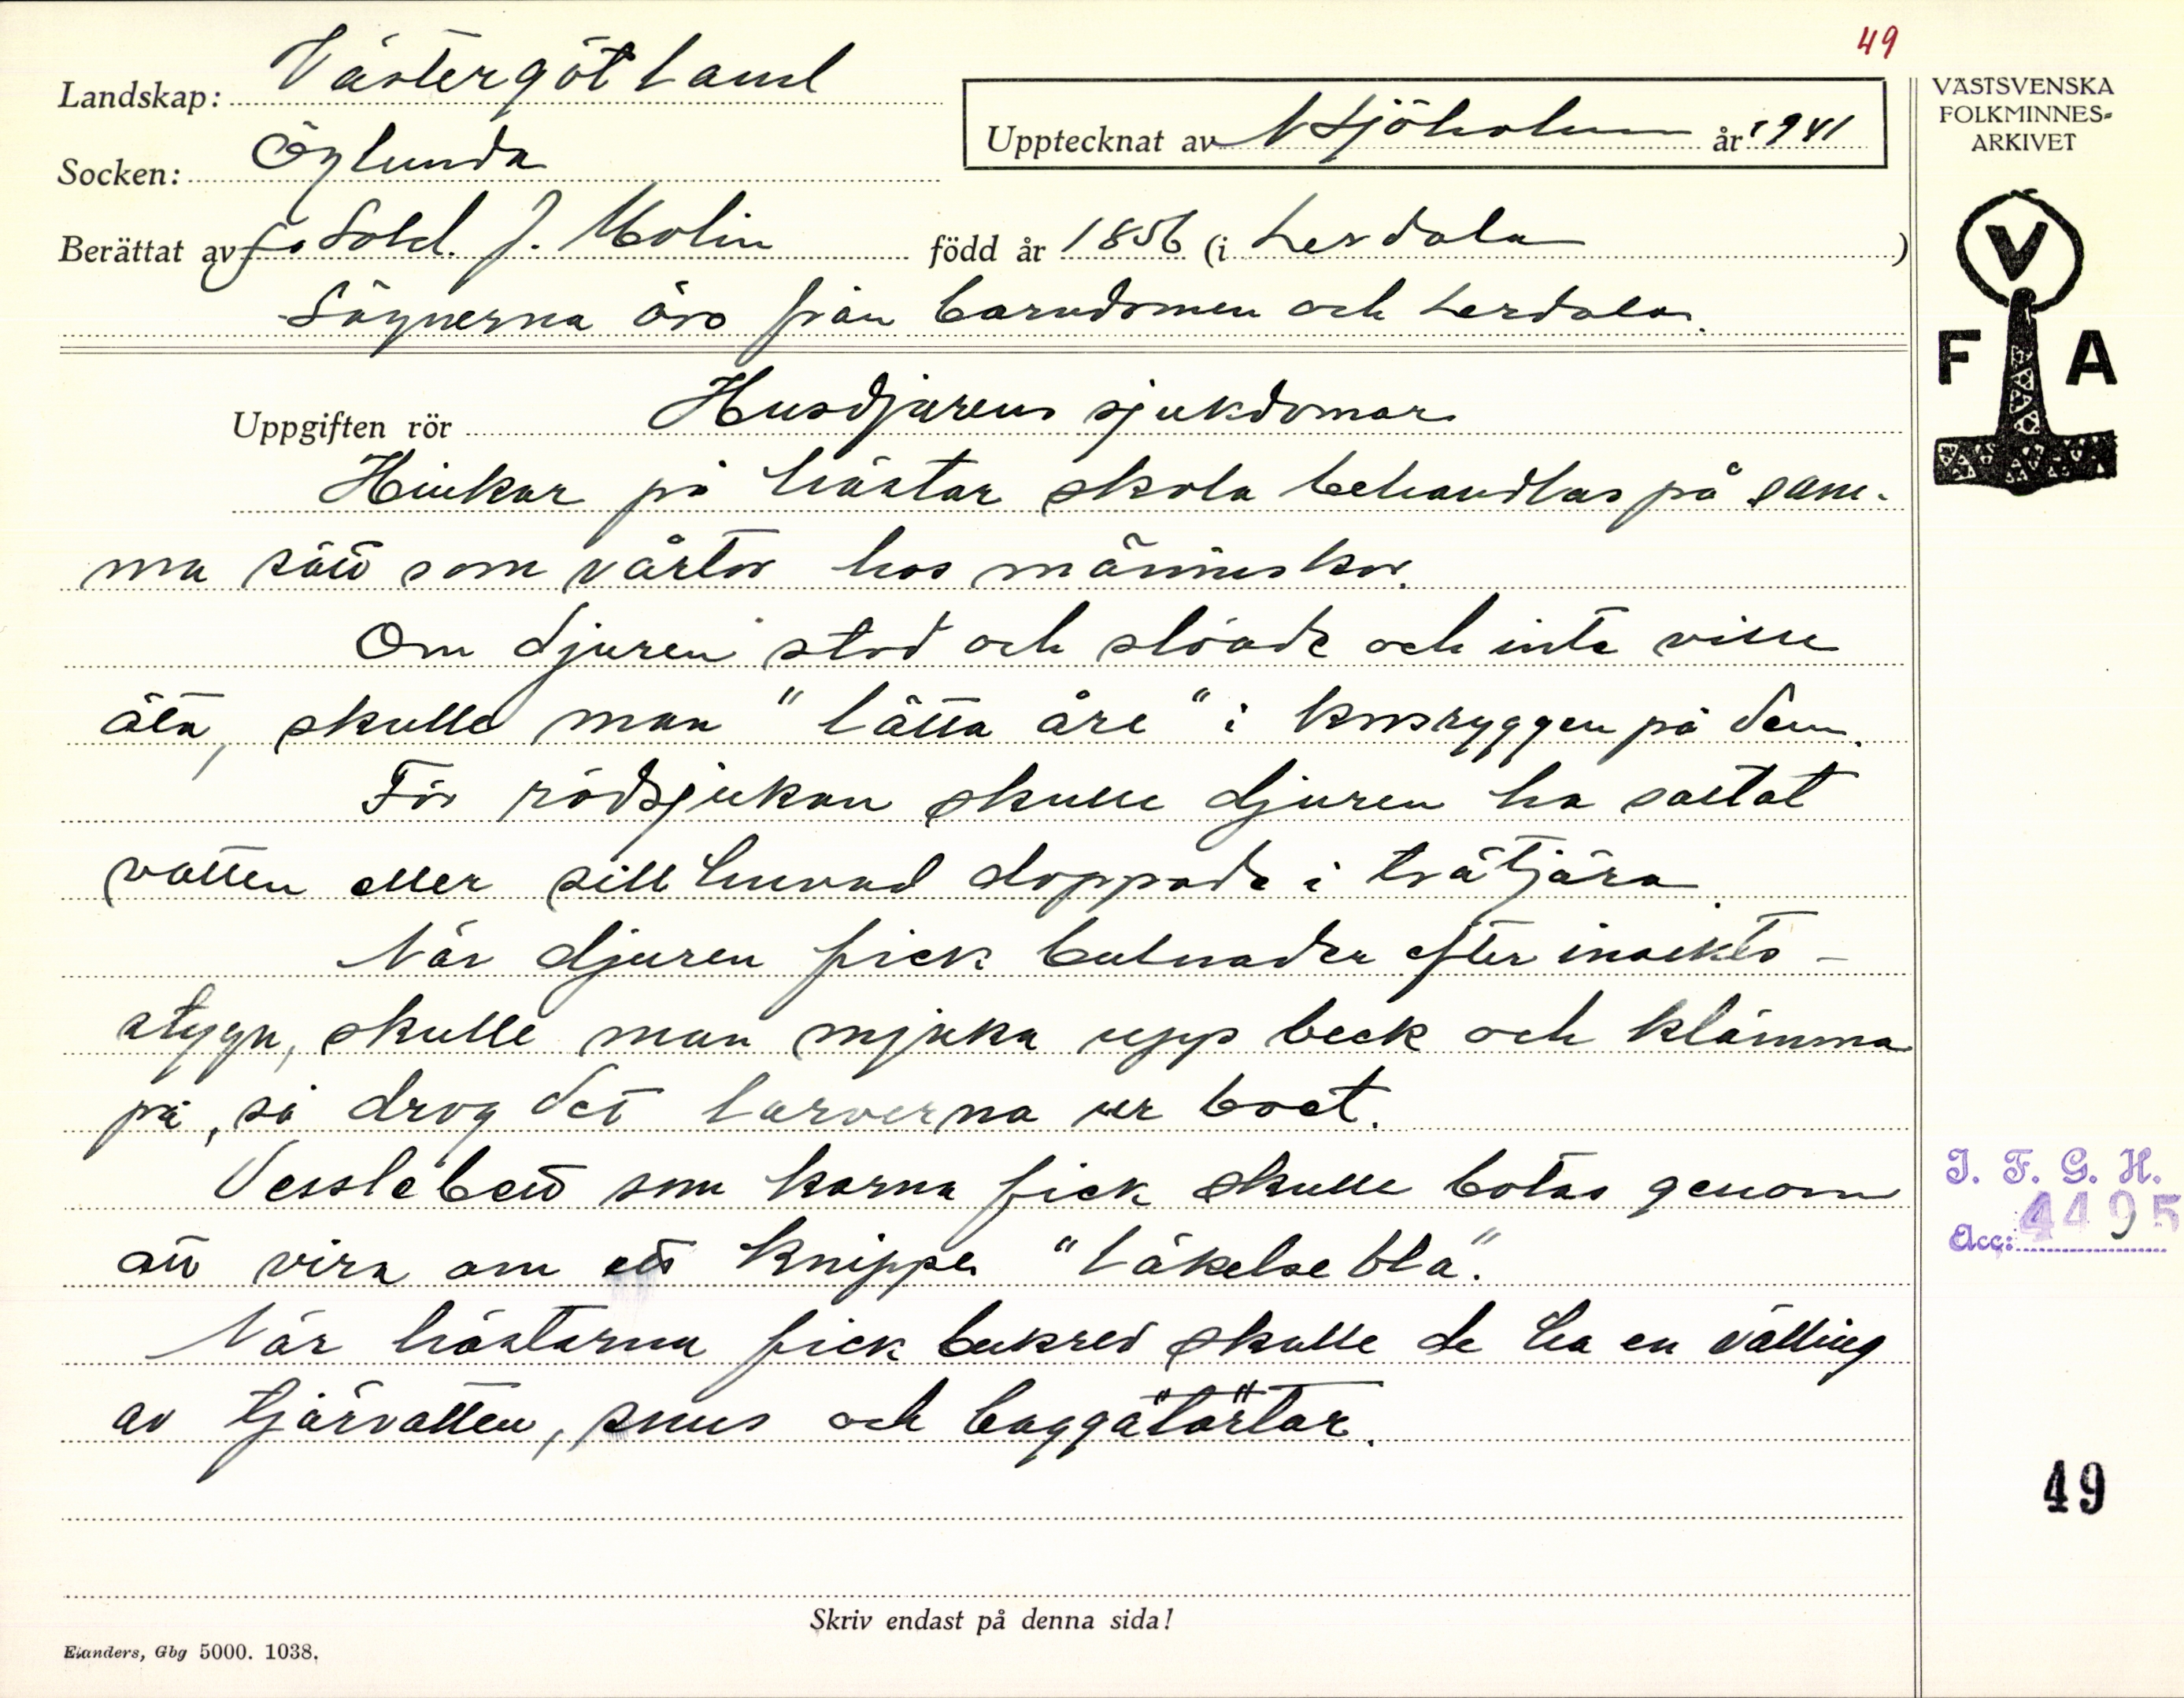 49
Landskap: Västergötland
VÄSTSVENSKA
FOLKMINNES-
ARKIVET
Upptecknat av N Sjöholm år 1941
Socken: Öglunda
Berättat av f. Sold. J. Molin född år 1856 (i Lerdala)
Sägnerna äro från barndomen och Lerdala.
V
F A
Uppgiften rör Husdjurens sjukdomar
på hästar skola behandlas på sam-
ma sätt som vårtor hos människor.
Om djuren stod och slöade och inte ville
äta, skulle man "lätta åre" i korsryggen på dem.
För rödsjukan skulle djuren ha saltat
vatten eller sillhuvud doppade i trätjära.
När djuren fick bulnader efter insekts-
stygn, skulle man mjuka upp beck och klämma
på, så drog det larverna ur boet.
Vesslebett som korna fick skulle botas genom
att vira om ett knippe "läkelseblå".
När hästarna fick bukrev skulle de ha en välling
av tjärvatten, snus och baggätårtar.
I. F. G. H.
Acc: 4495
49
Skriv endast på denna sida!
Elanders, Gbg 5000. 1038.